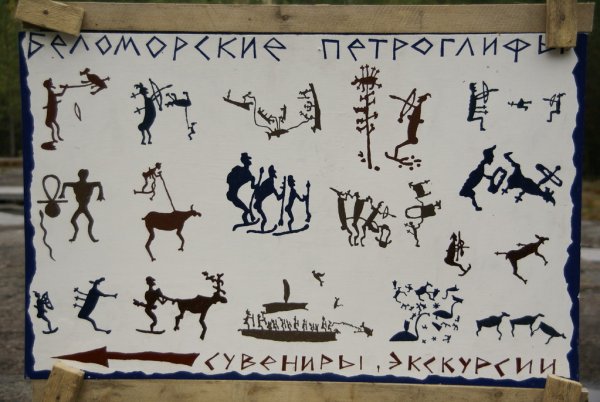 БЕЛОМОРСКИЕ ПЕТРОГЛИФЫ
СУВЕНИРЫ, ЭКСКУРСИИ